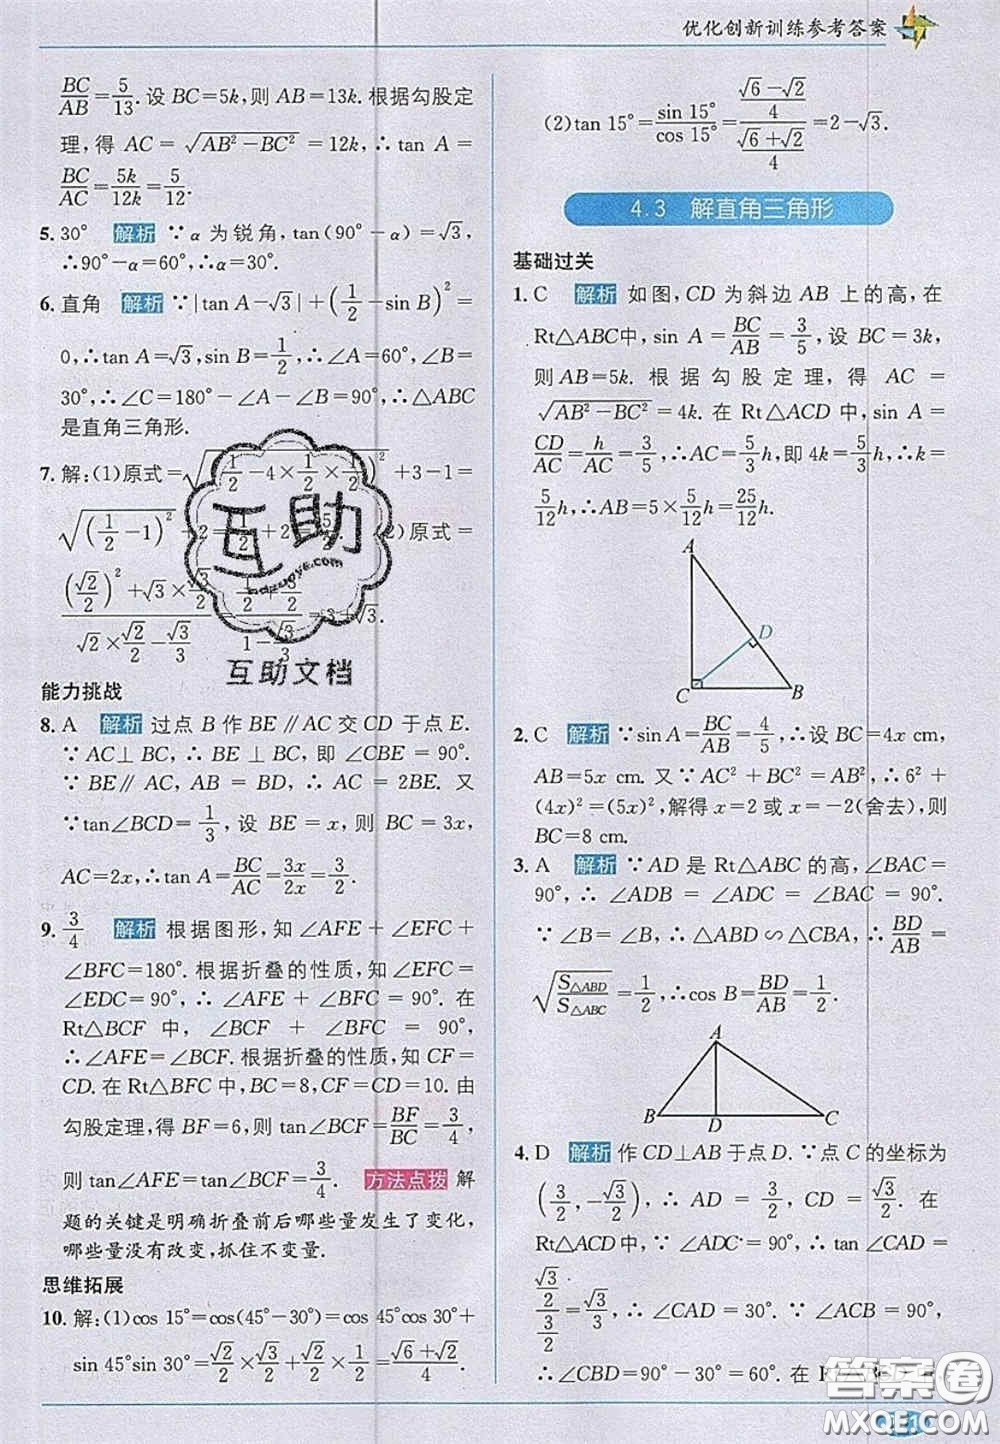 优化创新训练参考答案
BC/AB=5/13.设 BC=5k,则 AB=13k.根据勾股定
理,得 AC=√(AB²-BC²)=12k,∴tan A=
BC/AC=5k/12k=5/12.
5.30° 解析 ∵α 为锐角,tan(90°-α)=√3,
∴90°-α=60°,∴α=30°.
6.直角 解析 ∵|tan A-√3|+(1/2-sin B)²=
0,∴tan A=√3,sin B=1/2,∴∠A=60°,∠B=
30°,∴∠C=180°-∠A-∠B=90°,∴△ABC
是直角三角形.
7.解:(1)原式=√(1/2-4×1/2×1/2)²+3-1=
√(1/2-1)²+2=1/2+2=5/2.(2)原式=
((√2/2)²+√3×√3/2)/(√2×√2/2-√3/3)=(1/2+3/2)/(1-√3/3)=3+√3.
能力挑战
8.A 解析 过点 B 作 BE∥AC 交 CD 于点 E.
∵AC⊥BC,∴BE⊥BC,即∠CBE=90°.
∵BE∥AC,AB=BD,∴AC=2BE.又
∵tan∠BCD=1/3,设 BE=x,则 BC=3x,
AC=2x,∴tan A=BC/AC=3x/2x=3/2.
9.3/4 解析 根据图形,知∠AFE+∠EFC+
∠BFC=180°.根据折叠的性质,知∠EFC=
∠EDC=90°,∴∠AFE+∠BFC=90°.在
Rt△BCF 中,∠BCF+∠BFC=90°,
∴∠AFE=∠BCF.根据折叠的性质,知 CF=
CD.在 Rt△BFC 中,BC=8,CF=CD=10.由
勾股定理,得 BF=6,则 tan∠BCF=BF/BC=3/4,
则 tan∠AFE=tan∠BCF=3/4. 方法点拨 解
题的关键是明确折叠前后哪些量发生了变化,
哪些量没有改变,抓住不变量.
思维拓展
10.解:(1)cos 15°=cos(45°-30°)=cos 45°cos 30°+
sin 45°sin 30°=√2/2×√3/2+√2/2×1/2=(√6+√2)/4.
(2)tan 15°=sin 15°/cos 15°=((√6-√2)/4)/((√6+√2)/4)=2-√3.
4.3 解直角三角形
基础过关
1.C 解析 如图,CD 为斜边 AB 上的高,在
Rt△ABC中,sin A=BC/AB=3/5,设 BC=3k,
则AB=5k.根据勾股定理,得 AC=
√(AB²-BC²)=4k.在 Rt△ACD 中,sin A=
CD/AC=h/AC=3/5,∴AC=5/3h,即 4k=5/3h,∴k=
5/12h,∴AB=5×5/12h=25/12h.
A
D
C B
2.C 解析 ∵sin A=BC/AB=4/5,∴设 BC=4x cm,
AB=5x cm.又∵AC²+BC²=AB²,∴6²+
(4x)²=(5x)²,解得 x=2 或 x=-2(舍去),则
BC=8 cm.
3.A 解析 ∵AD 是 Rt△ABC 的高,∠BAC=
90°,∴∠ADB=∠ADC=∠BAC=90°.
∵∠B=∠B,∴△ABD∽△CBA,∴BD/AB=
√(S△ABD/S△ABC)=1/2,∴cos B=BD/AB=1/2.
A
B D C
4.D 解析 作 CD⊥AB 于点 D.∵点 C 的坐标为
(3/2,-√3/2),∴AD=3/2,CD=√3/2.在
Rt△ACD中,∵∠ADC=90°,∴tan∠CAD=
(√3/2)/(3/2)=√3/3,∴∠CAD=30°.∵∠ACB=90°,
∴∠CBD=90°-30°=60°.在
互助
hdzuoye.com
互助文档
答案圈
MXQE.COM